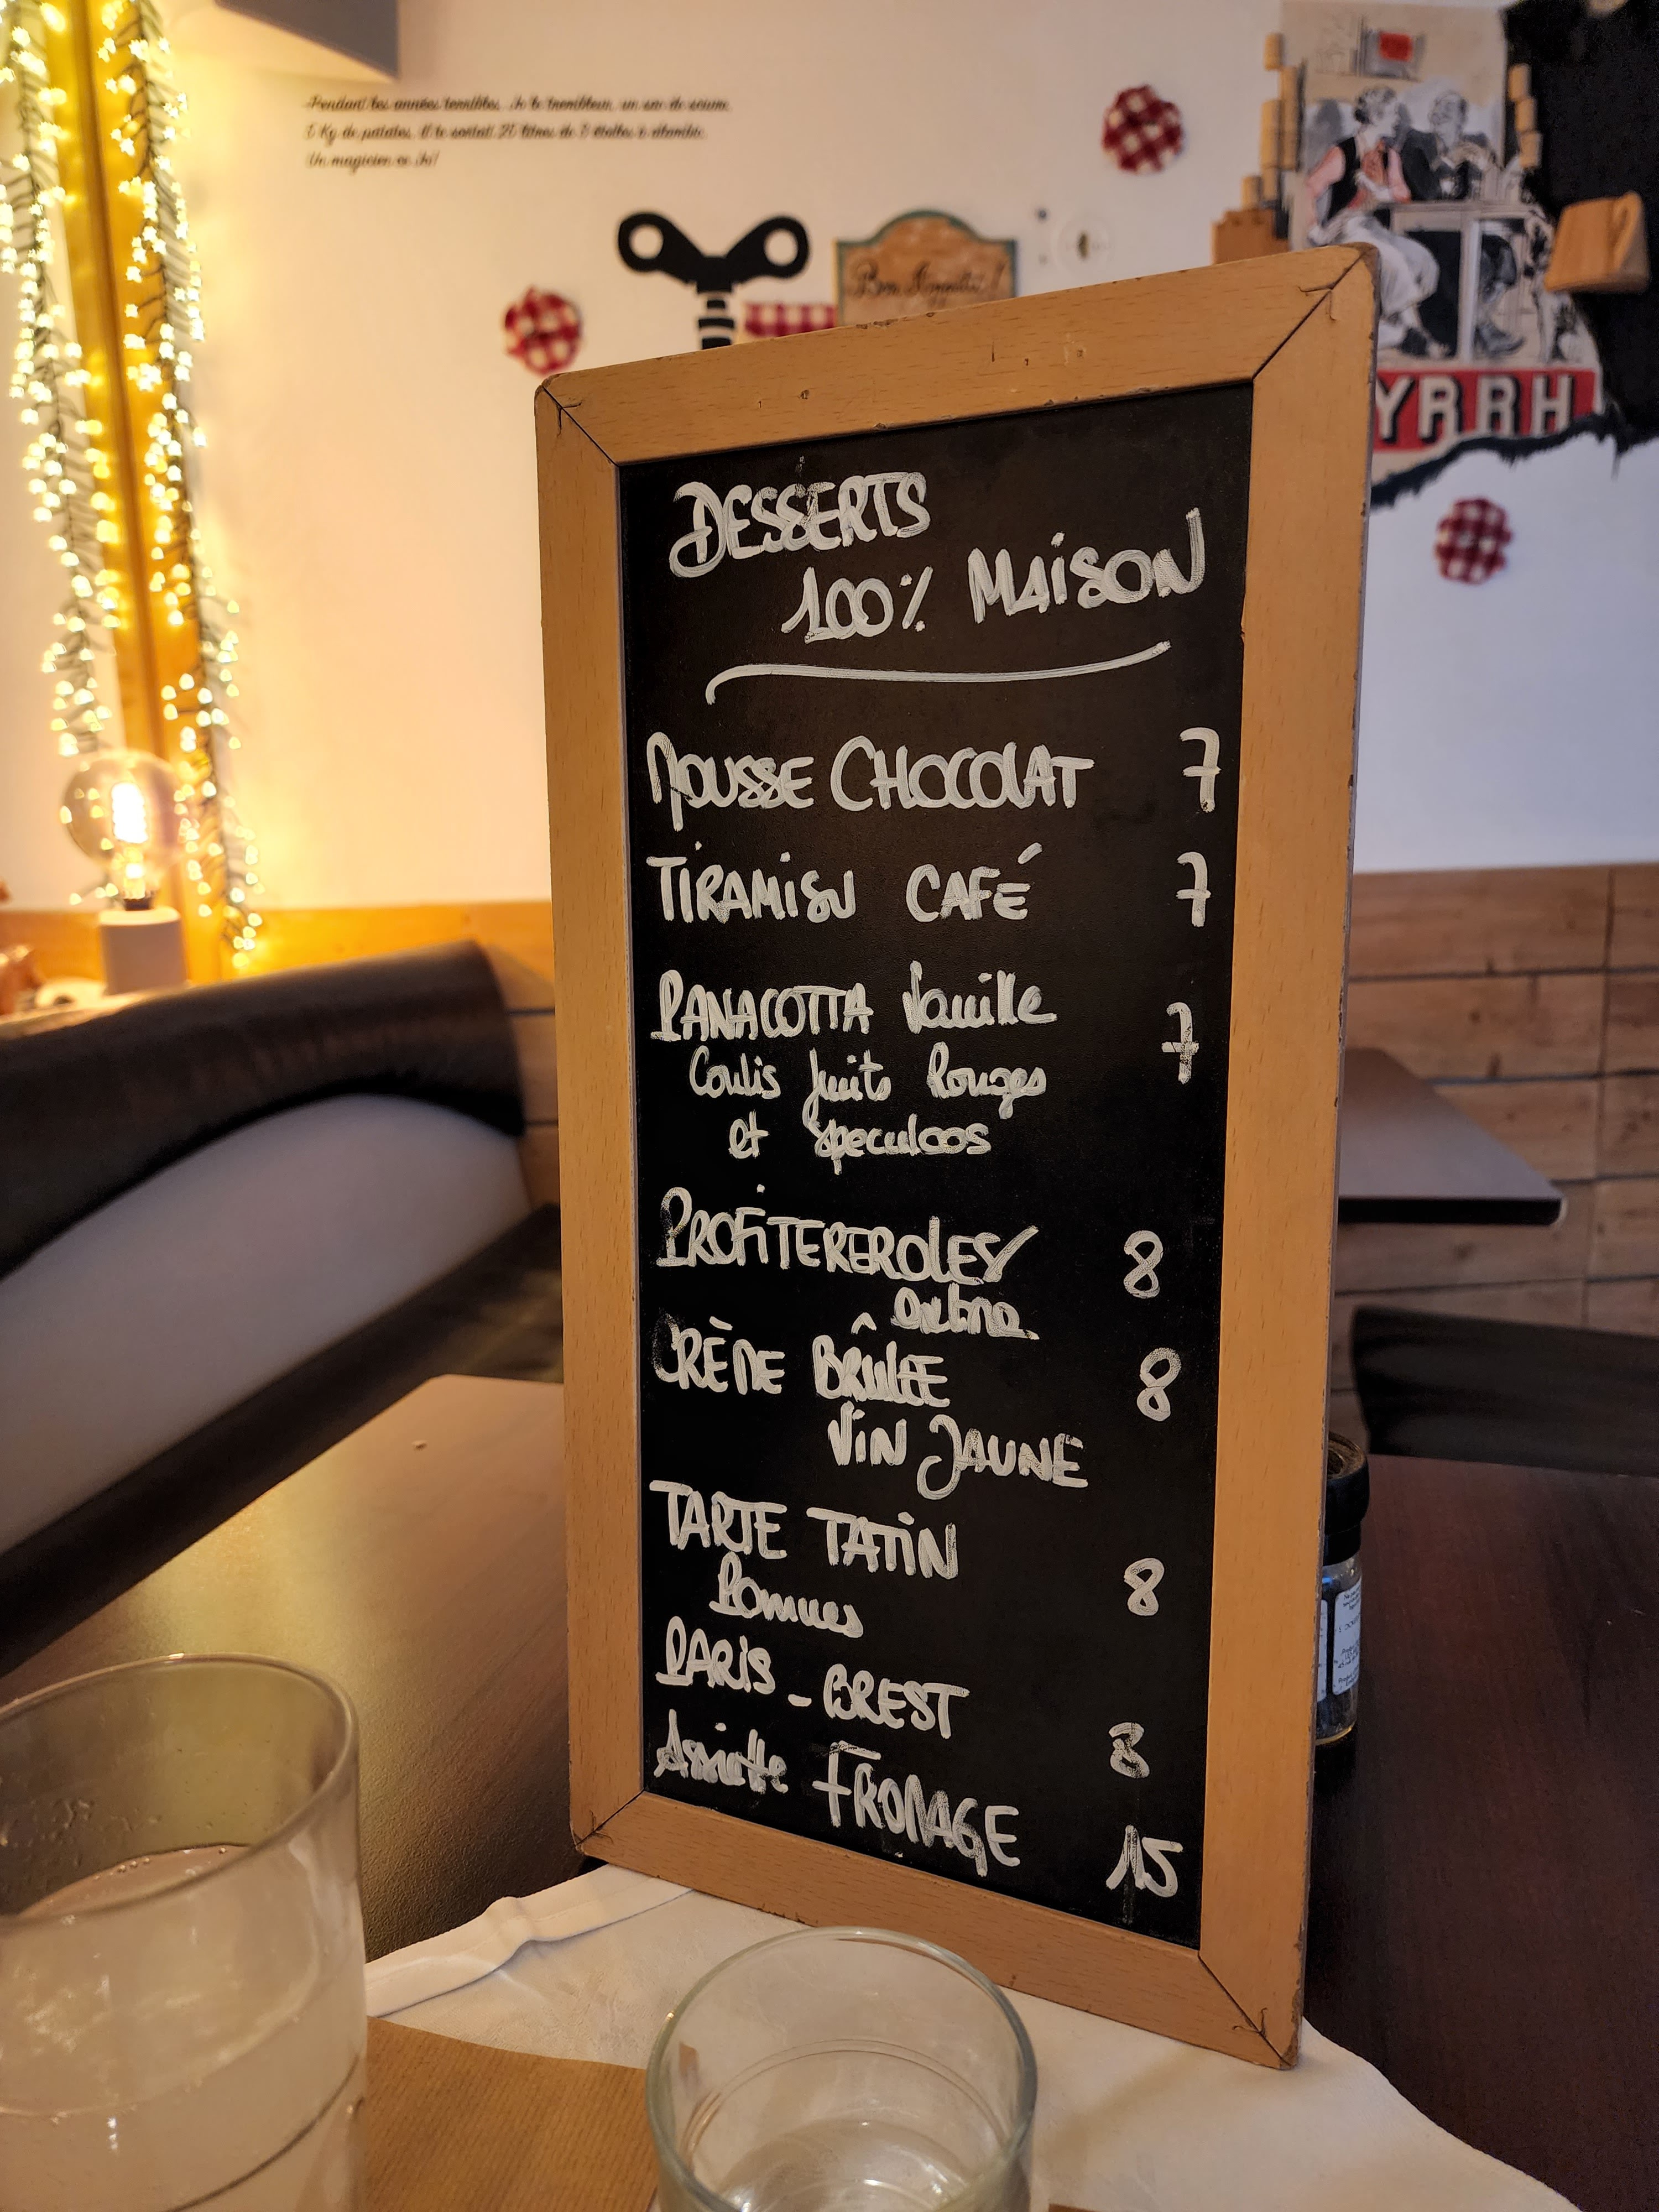 Pendant les années terribles, Jo le trembleur, un sac de sciure,
5 Kg de patates, il te sortait 25 litres de 3 étoiles à alambic.
Un magicien ce Jo!
Bon Appétit !
YRRH
DESSERTS
100% MAiSON
MOUSSE CHOCOLAT 7
TiRAMiSU CAFÉ 7
PANACOTTA Vanille 7
Coulis fruits Rouges
et speculoos
PROFiTEREROLES 8
CRÈME BRÛLEE 8
ViN JAUNE
TARTE TATiN
Pommes 8
PARiS - BREST 8
Assiette FROMAGE 15